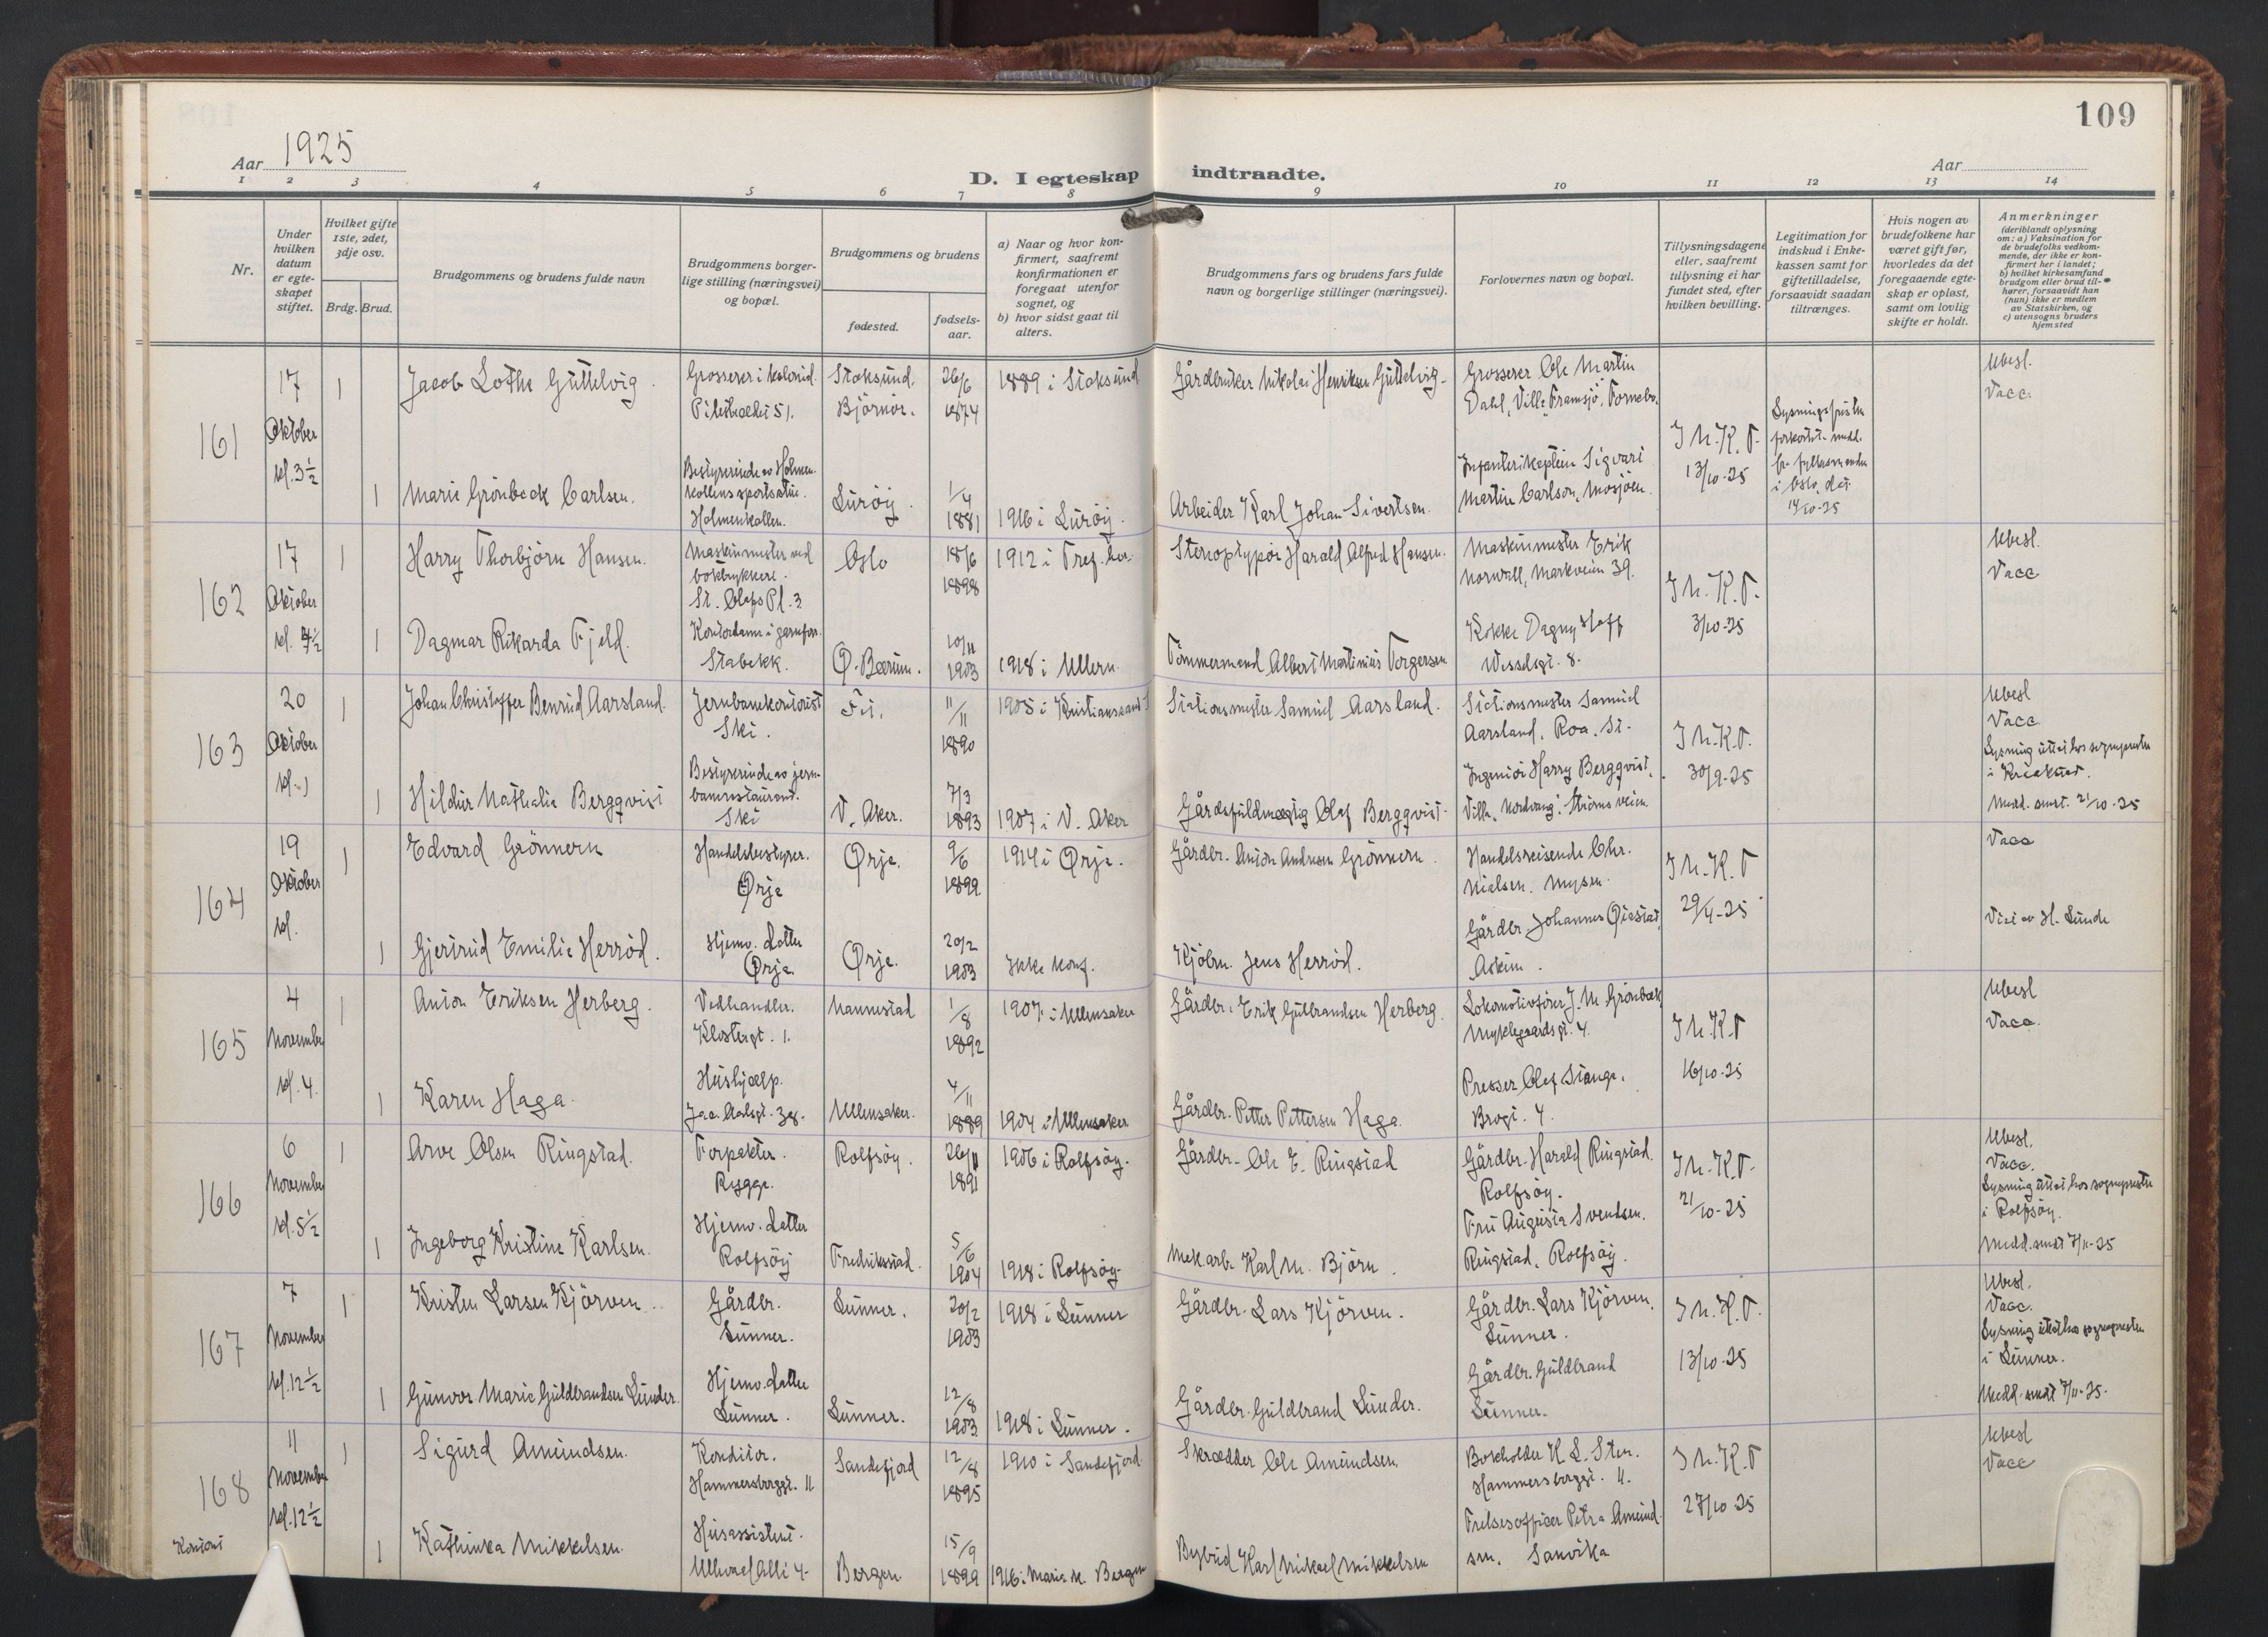 109
Aar 1925
Aar
D. I egteskap indtraadte.
1 2 3 4 5 6 7 8 9 10 11 12 13 14
Nr.
Under hvilken datum er egteskapet stiftet.
Hvilket gifte 1ste, 2det, 3dje osv.
Brdg. Brud.
Brudgommens og brudens fulde navn
Brudgommens borgerlige stilling (næringsvei) og bopæl.
Brudgommens og brudens
fødested.
fødselsaar.
a) Naar og hvor konfirmert, saafremt konfirmationen er foregaat utenfor sognet, og
b) hvor sidst gaat til alters.
Brudgommens fars og brudens fars fulde navn og borgerlige stillinger (næringsvei).
Forlovernes navn og bopæl.
Tillysningsdagene eller, saafremt tillysning ei har fundet sted, efter hvilken bevilling.
Legitimation for indskud i Enkekassen samt for giftetilladelse, forsaavidt saadan tiltrænges.
Hvis nogen av brudefolkene har været gift før, hvorledes da det foregaaende egteskap er opløst, samt om lovlig skifte er holdt.
Anmerkninger (deriblandt oplysning om: a) Vaksination for de brudefolks vedkommende, der ikke er konfirmert her i landet; b) hvilket kirkesamfund brudgom eller brud tilhører, forsaavidt han (hun) ikke er medlem av Statskirken, og c) utensogns bruders hjemsted
161
17 Oktober kl. 3½
1 Jacob Lothe Guttelvig.
Grosserer i kolonial. Pilestrædet 51.
Stoksund. Bjørnør.
26/6 1874
1889 i Stoksund
Gårdbruker Nikolai Henriksen Guttelvig
Grosserer Ole Martin Dahl, Villa Framsjø, Fornebo.
J.N.K.T. 13/10-25
Lysningsfristen forkortet. medd. fr. fylkesmanden i Oslo, dat. 14/10-25
Ubesl. Vacc.
1 Marie Grønbeck Carlsen.
Bestyrerinde av Holmenkollens sportsstue. Holmenkollen.
Lurøy.
1/4 1881
1916 i Lurøy.
Arbeider Karl Johan Sivertsen.
Infanterikaptein Sigvart Martin Carlson, Mosjøen.
162
17 Oktober kl. 4½
1 Harry Thorbjørn Hansen.
Maskinmester ved boktrykkeri. St. Olafs Pl. 3
Oslo
18/6 1898
1912 i Tref. ker.
Stenoptypør Harald Alfred Hansen.
Maskinmester Erik Norvall, Markveien 39.
J.N.K.T. 3/10-25
Ubesl. Vacc
1 Dagmar Rikarda Fjeld.
Kontordame i garnfor. Stabekk.
Ø. Bærum.
10/11 1903
1918 i Ullern
Tømmermand Albert Martinius Torgersen
Kokke Dagny Hoff Wesselsgt. 8.
163
20 Oktober kl. 1
1 Johan Christoffer Benrud Aarsland.
Jernbanekontorist Ski.
Fet.
11/11 1890
1905 i Kristianssand S
Stationsmester Samuel Aarsland.
Stationsmester Samuel Aarsland, Roa. St.
J.N.K.T. 30/9-25
Ubesl Vacc. Lysning uttat hos sognepresten i Kraakstad. Medd. sendt. 21/10-25
1 Hildur Nathalie Bergqvist
Bestyrerinde av jernbanerestaurant. Ski
V. Aker.
7/3 1893
1907 i V. Aker
Gårdsfuldmægtig Olaf Bergqvist
Ingeniør Harry Bergqvist, Villa "Nordvang", Strømsveien.
164
19 Oktober kl.
1 Edvard Grønnern
Handelsbestyrer. Ørje
Ørje.
9/6 1899
1914 i Ørje.
Gårdbr. Anton Andresen Grønnern.
Handelsreisende Chr. Nielsen. Mysen.
J.N.K.T 29/4-25
Vacc
Viet av H. Lunde
1 Gjertrud Emilie Herrød.
Hjemv. datter Ørje
Ørje.
20/2 1903
Ikke konf.
Kjøbm. Jens Herrød.
Gårdbr. Johannes Øiestad, Askim.
165
4 November kl. 4.
1 Anton Eriksen Herberg.
Vedhandler. Klostergt. 1.
Nannestad
1/8 1892
1907 i Ullensaker
Gårdbr. Erik Gulbrandsen Herberg.
Lokomotivfører J. M. Grønbæk Myklegaardsgt. 4.
J.N.K.T 16/10-25
Ubesl Vacc.
1 Karen Haga.
Hushjælp. Jac. Aalsgt. 38.
Ullensaker.
4/11 1889
1904 i Ullensaker
Gårdbr. Petter Pettersen Haga.
Presser Olaf Stange. Brogt. 4.
166
6 November kl. 5½
1 Arve Olsen Ringstad.
Forpakter. Rygge.
Rolfsøy.
26/11 1891
1906 i Rolfsøy.
Gårdbr. Ole E. Ringstad
Gårdbr. Harald Ringstad. Rolfsøy.
J.N.K.T. 21/10-25
Ubesl. Vacc. Lysning uttat hos sogneprestn i Rolfsøy. Medd. sendt 7/11-25
1 Ingeborg Kristine Karlsen.
Hjemv. datter Rolfsøy
Fredriksstad.
5/6 1904
1918 i Rolfsøy
Mek arb. Karl M. Bjørn.
Fru Augusta Svendsen. Ringstad, Rolfsøy.
167
7 November kl. 12½
1 Kristen Larsen Kjørven.
Gårdbr. Lunner.
Lunner.
20/2 1903
1918 i Lunner
Gårdbr. Lars Kjørven.
Gårdbr. Lars Kjørven, Lunner.
J.N.K.T. 13/10-25
Ubesl. Vacc. Lysning uttat hos sogneprestn i Lunner. Medd. sendt 7/11-25.
1 Gunvor Marie Guldbrandsen Lunder.
Hjemv. datter Lunner.
Lunner.
12/8 1903
1918 i Lunner.
Gårdbr. Guldbrand Lunder.
Gårdbr. Guldbrand Lunner.
168
11 November kl. 12½
Kontoret
1 Sigurd Amundsen.
Konditor. Hammersborggt. 11
Sandefjord
12/8 1895
1910 i Sandefjord
Skrædder Ole Amundsen
Bokholder K. L. Sten. Hammersborggt. 11.
J.N.K.T 27/10-25
Ubesl Vacc
1 Kathinka Mikkelsen.
Husassistent. Ullevaal Allé 4.
Bergen
15/9 1899
1916 i Maria k. Bergen
Bybud Karl Mikael Mikkelsen
Frelsesofficer Petra Amundsen. Sanvika